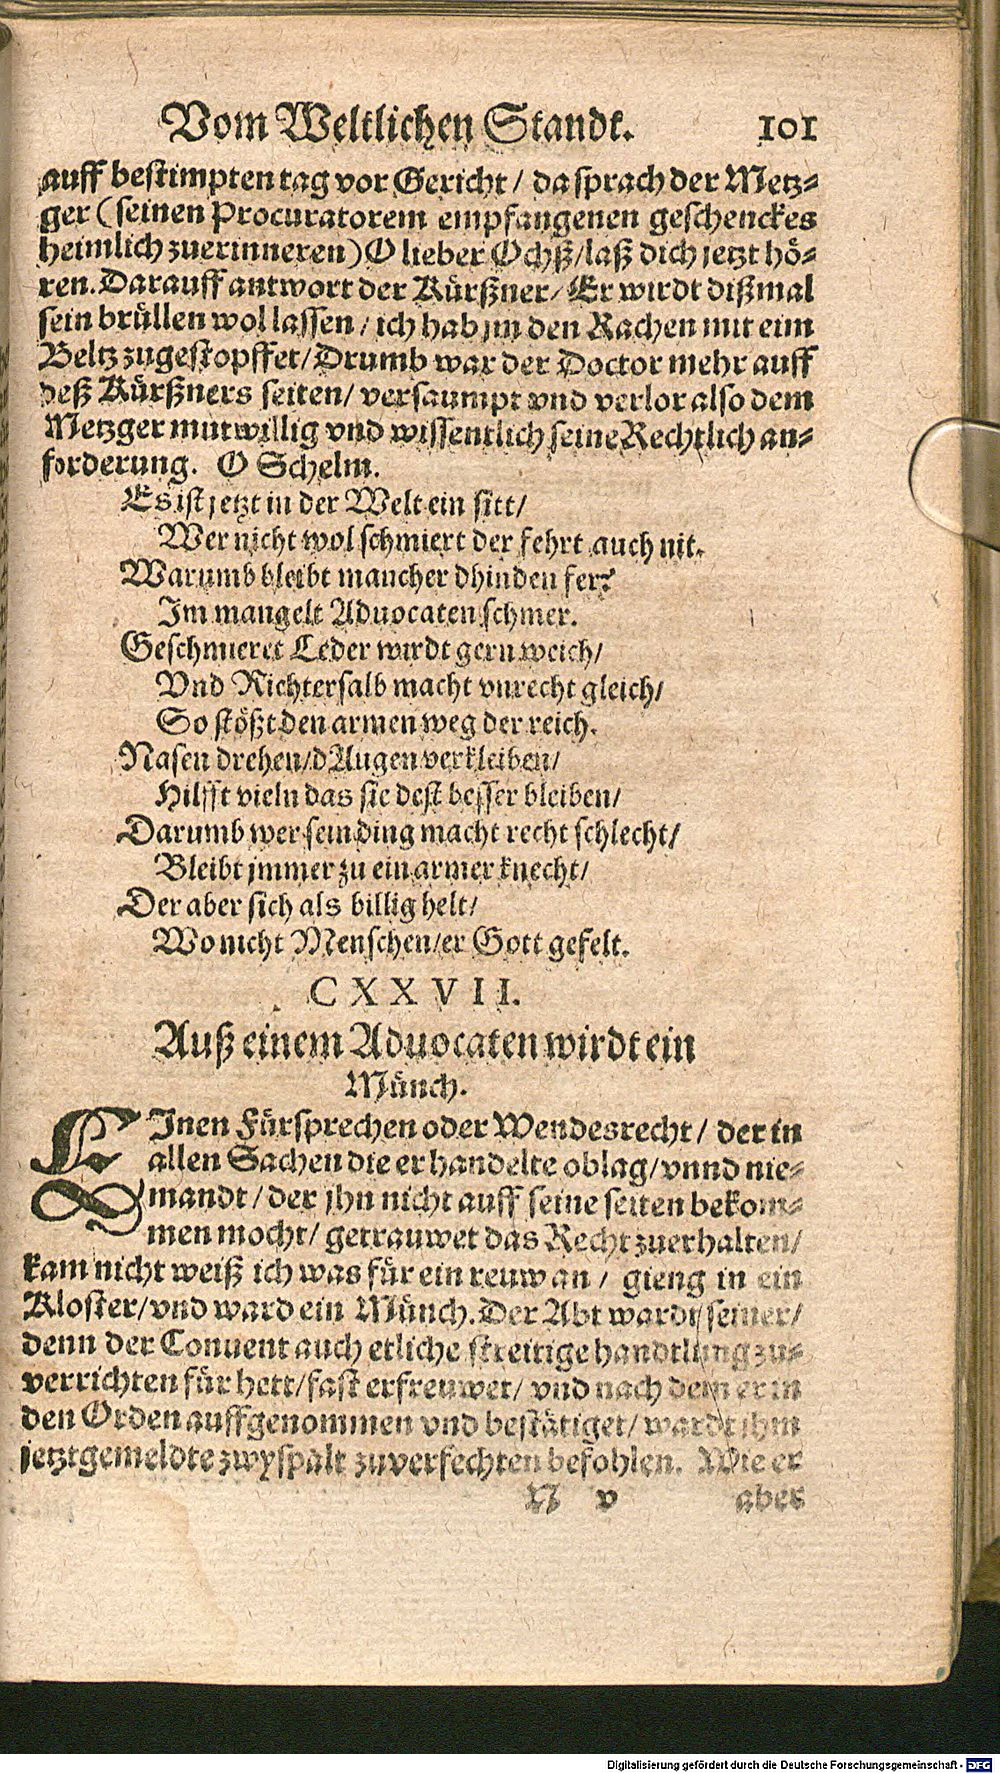 Vom Weltlichen Standt. 101
auff bestimpten tag vor Gericht / da sprach der Metz⸗
ger (seinen Procuratorem empfangenen geschenckes
heimlich zuerinneren) O lieber Ochß / laß dich jetzt hö⸗
ren. Darauff antwort der Kürßner / Er wirdt dißmal
sein brüllen wol lassen / ich hab jm den Rachen mit eim
Beltz zugestopffet / Drumb war der Doctor mehr auff
deß Kürßners seiten / versaumpt vnd verlor also dem
Metzger mutwillig vnd wissentlich seine Rechtlich an⸗
forderung. O Schelm.
Es ist jetzt in der Welt ein sitt /
Wer nicht wol schmiert der fehrt auch nit.
Warumb bleibt mancher dhinden fer?
Im mangelt Aduocaten schmer.
Geschmieret Leder wirdt gern weich /
Vnd Richtersalb macht vnrecht gleich /
So stößt den armen weg der reich.
Nasen drehen / d Augen verkleiben /
Hilfft vieln das sie dest besser bleiben /
Darumb wer sein ding macht recht schlecht /
Bleibt jmmer zu ein armer knecht /
Der aber sich als billig helt /
Wo nicht Menschen / er Gott gefelt.
CXXVII.
Auß einem Aduocaten wirdt ein
Münch.
EInen Fürsprechen oder Wendesrecht / der in
allen Sachen die er handelte oblag / vnnd nie⸗
mandt / der jhn nicht auff seine seiten bekom⸗
men mocht / getrauwet das Recht zuerhalten /
kam nicht weiß ich was für ein reuw an / gieng in ein
Kloster / vnd ward ein Münch. Der Abt wardt seiner /
denn der Conuent auch etliche streitige handtlung zu⸗
verrichten für hett / fast erfreuwet / vnd nach dem er in
den Orden auffgenommen vnd bestätiget / wardt jhm
jetztgemeldte zwyspalt zuverfechten befohlen. Wie er
N v aber
Digitalisierung gefördert durch die Deutsche Forschungsgemeinschaft - DFG